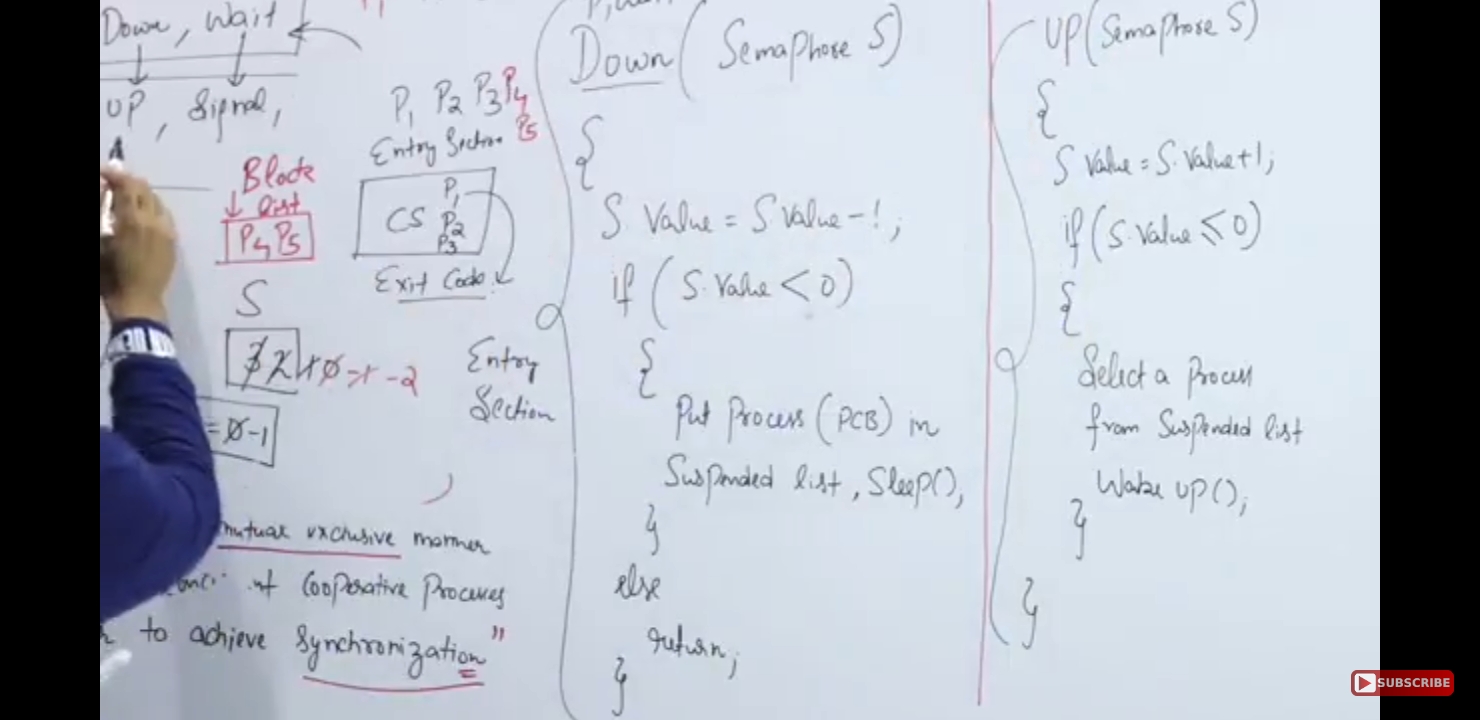 Down, Wait
UP, Signal,
Block
list
P4 P5
S
3 2 1 0 -1 -2
= 0 -1
P1 P2 P3 P4
P5
Entry Section
CS P1
P2
P3
Exit Code
Entry
Section
mutual exclusive manner
of Cooperative Processes
to achieve Synchronization"
Down (Semaphore S)
{
S Value = S Value - 1;
if (S. Value < 0)
{
Put Process (PCB) in
Suspended list, Sleep(),
}
else
return;
}
UP(Semaphore S)
{
S Value = S. Value+1;
if (S. Value ≤ 0)
{
Select a Process
from Suspended list
Wake UP();
}
}
SUBSCRIBE